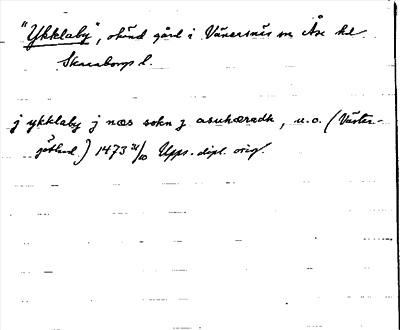 "Ykklaby", okänd gård i Vänersnäs sn Åse hd
Skaraborgs l.
j ykklaby j næs sokn j asuhæradh, u.o. (Väster-
götland.) 1473 31/10 Upps. dipl. orig.